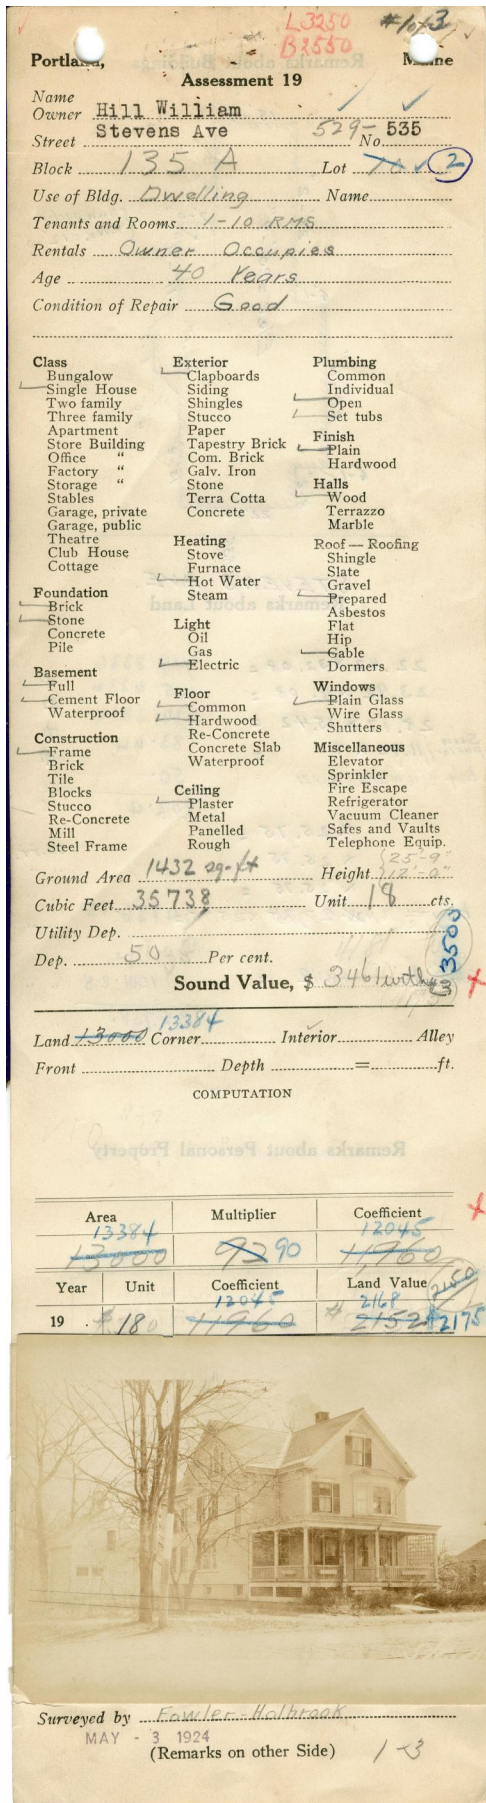 L3250 #1of3
B2550
Portland, Maine
Assessment 19
Name
Owner Hill William
Street Stevens Ave 529- No. 535
Block 135 A Lot 2
Use of Bldg. Dwelling Name
Tenants and Rooms 1-10 RMS
Rentals Owner Occupies
Age 40 Years
Condition of Repair Good
Class
Bungalow
Single House
Two family
Three family
Apartment
Store Building
Office "
Factory "
Storage "
Stables
Garage, private
Garage, public
Theatre
Club House
Cottage
Foundation
Brick
Stone
Concrete
Pile
Basement
Full
Cement Floor
Waterproof
Construction
Frame
Brick
Tile
Blocks
Stucco
Re-Concrete
Mill
Steel Frame
Exterior
Clapboards
Siding
Shingles
Stucco
Paper
Tapestry Brick
Com. Brick
Galv. Iron
Stone
Terra Cotta
Concrete
Heating
Stove
Furnace
Hot Water
Steam
Light
Oil
Gas
Electric
Floor
Common
Hardwood
Re-Concrete
Concrete Slab
Waterproof
Ceiling
Plaster
Metal
Panelled
Rough
Plumbing
Common
Individual
Open
Set tubs
Finish
Plain
Hardwood
Halls
Wood
Terrazzo
Marble
Roof — Roofing
Shingle
Slate
Gravel
Prepared
Asbestos
Flat
Hip
Gable
Dormers
Windows
Plain Glass
Wire Glass
Shutters
Miscellaneous
Elevator
Sprinkler
Fire Escape
Refrigerator
Vacuum Cleaner
Safes and Vaults
Telephone Equip.
Ground Area 1432 sq-ft Height 25'-9" 12'-0"
Cubic Feet 35738 Unit 18 cts.
Utility Dep.
Dep. 50 Per cent. 3500
Sound Value, $ 3461
13384
Land 13000 Corner Interior Alley
Front Depth = ft.
COMPUTATION
Area Multiplier Coefficient
13384 12045
13000 92 90 11960
Year Unit Coefficient Land Value 2150
12045 2168
19 $ .180 11960 # 2152 $2175
Surveyed by Fowler-Holbrook
MAY - 3 1924
(Remarks on other Side) 1-3